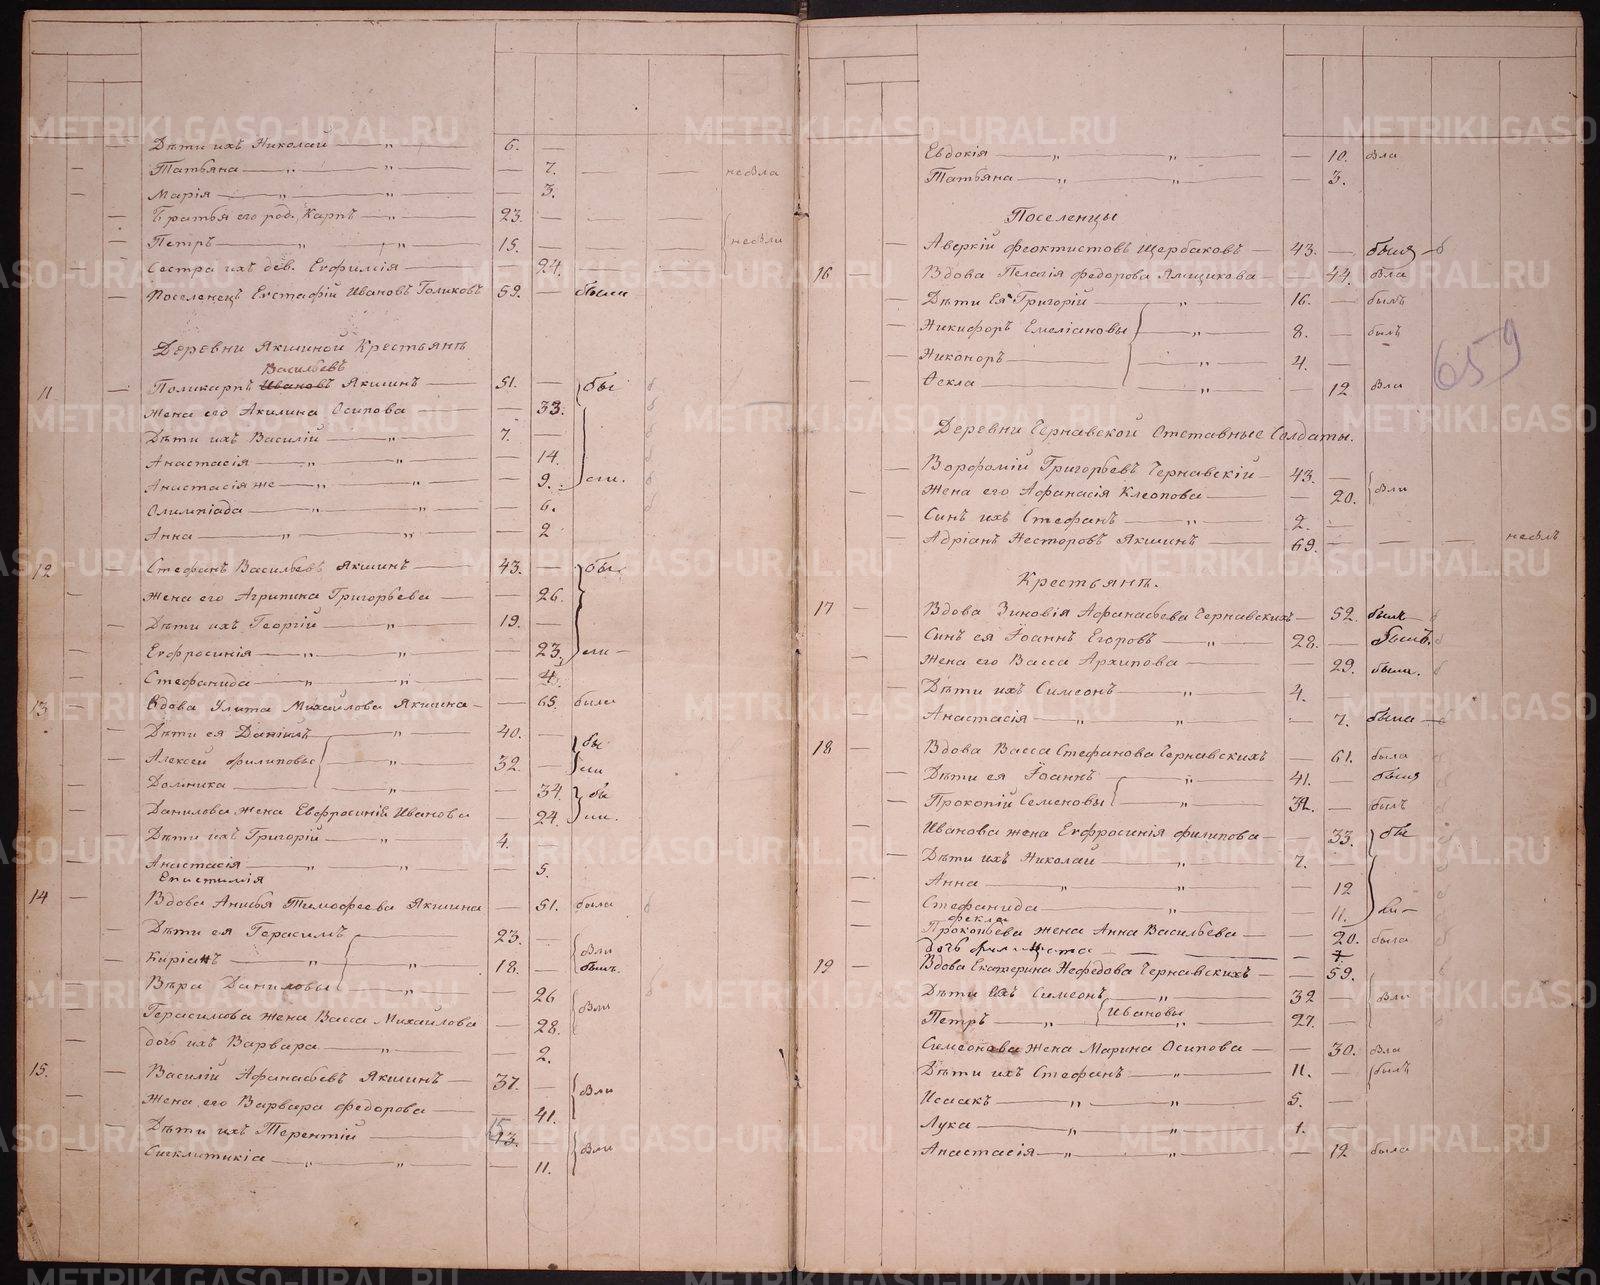 Дѣти ихъ Николай — „ — 6. —
Татьяна — „ — „ — 7. — — небыла
Марія — „ — „ — 3.
Братья его род. Карпъ — „ — 23. — — —
Петръ — „ — „ — 15. — небыли
Сестра ихъ дѣв. Евфимія — 24.
Поселенецъ Евстафій Ивановъ Голиковъ 59. —
Деревни Якшиной Крестьянѣ
Васильевъ
11 — Поликарпъ Ивановъ Якшинъ — 51. — бы
Жена его Акилина Осипова — 33.
Дѣти ихъ Василій — „ — 7. —
Анастасія — „ — „ — 14.
Анастасія же — „ — 9.
Олимпіада — „ — „ — 6.
Анна — „ — „ — 2
12 — Стефанъ Васильевъ Якшинъ — 43. — бы
Жена его Агрипина Григорьева — 26.
Дѣти ихъ Георгій — „ — 19. —
Евфросинія — „ — „ — 23.
Стефанида — „ — „ — 4.
13 — Вдова Улита Михайлова Якшина — 65. была
Дѣти ея Даніилъ — „ — 40. — бы
Алексей Филиповы — „ — 32. — ли
Домника — „ — 34. бы
Данилова жена Евфросинія Иванова — 24. ли.
Дѣти ихъ Григорій — „ — 4.
Анастасія — „ — 5.
Епистимія
14 — Вдова Анисья Тимофеева Якшина — 51. была
Дѣти ея Герасимъ — 23. — были
Киріакъ — „ — „ — 18. — былъ.
Вѣра Даниловы — „ — 26 были
Герасимова жена Васса Михайлова — 28.
дочь ихъ Варвара — „ — 2.
15. — Василій Афанасьевъ Якшинъ — 37. — были
Жена его Варвара Федорова — 41.
Дѣти ихъ Терентій — 15 13. были
Сигклитикіа — „ — „ — 11.
Евдокія — „ — „ — 10. была
Татьяна — „ — „ — 3.
Поселенцы
Аверкій Феоктистовъ Щербаковъ — 43. —
16 — Вдова Пелагія Федорова Ямщикова — 44. была
Дѣти ея Григорій — „ — 16. — былъ
Никифоръ Емеліановы — „ — 8. — былъ
Никоноръ — „ — 4. —
Фекла — „ — 12 была
659
Деревни Чернавской Отставные Солдаты.
Ворфомій Григорьевъ Чернавскій — 43. — были
Жена его Афанасія Клеопова — 20.
Синъ ихъ Стефанъ — „ — 2. —
Адріанъ Несторовъ Якшинъ — 69. — — — небылъ
Крестьянѣ.
17 — Вдова Зиновія Афанасьева Чернавскихъ — 52.
Синъ ея Іоаннъ Егоровъ — „ — 28. — былъ.
Жена его Васса Архипова — 29. была.
Дѣти ихъ Симеонъ — „ — 4. —
Анастасія — „ — „ — 7. была
18 — Вдова Васса Стефанова Чернавскихъ — 61. была
Дѣти ея Іоаннъ — „ — 41. —
Прокопій Семеновы — „ — 31. — былъ
Иванова жена Евфросинія Филипова — 33. бы
Дѣти ихъ Николай — „ — 7. —
Анна — „ — „ — 12
Стефанида — „ — 11. ли
Фекла
Прокопьева жена Анна Васильева — 20. была
19 — Вдова Екатерина Нефедова Чернавскихъ — 59.
Дѣти ихъ Симеонъ — „ — 32 — были
Петръ — „ — Ивановы „ — 27. —
Симеонова жена Марина Осипова — 30. была
Дѣти ихъ Стефанъ — „ — 11. — былъ
Исаакъ — „ — „ — 5. —
Лука — „ — „ — 1.
Анастасія — „ — „ — 12 была
METRIKI.GASO-URAL.RU